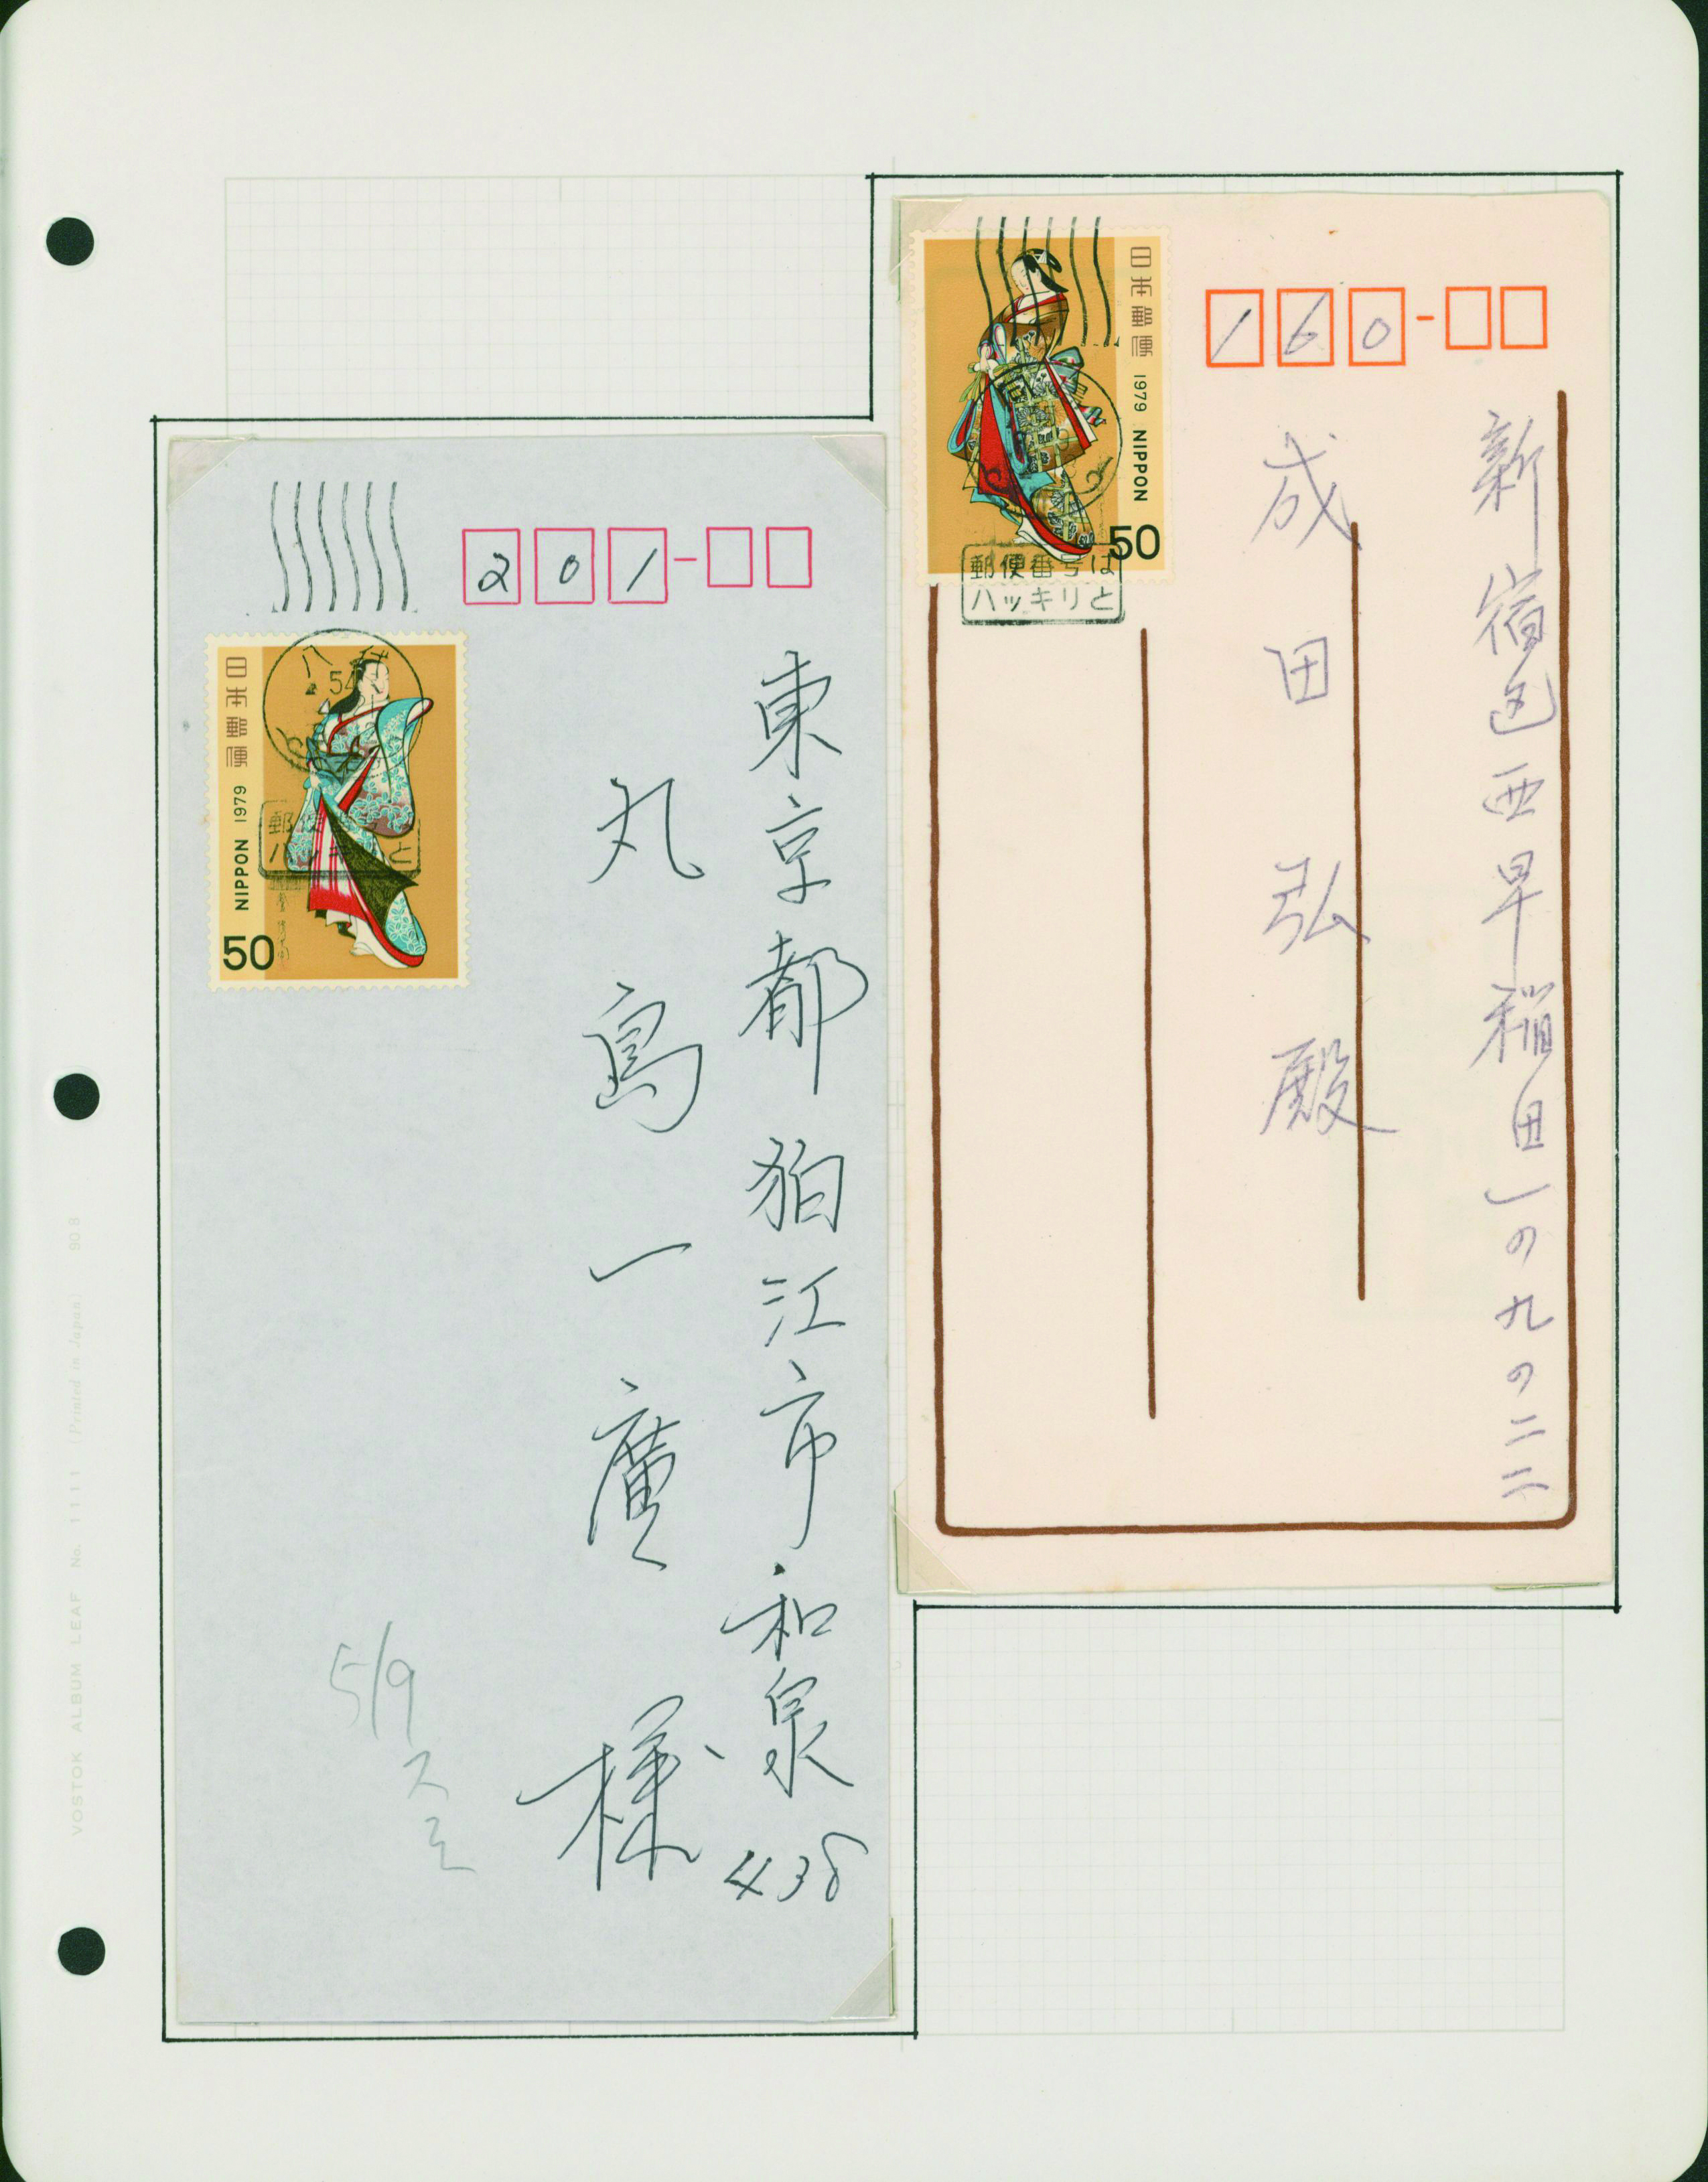 日本郵便 1979 NIPPON
50
郵便番号は
ハッキリと
160
新宿区西早稲田一の九の二二
成田弘殿
201
日本郵便 1979 NIPPON
50
54
東京都狛江市和泉438
丸島一廣様
5/9
VOSTOK ALBUM LEAF No. 1111 (Printed in Japan) 908